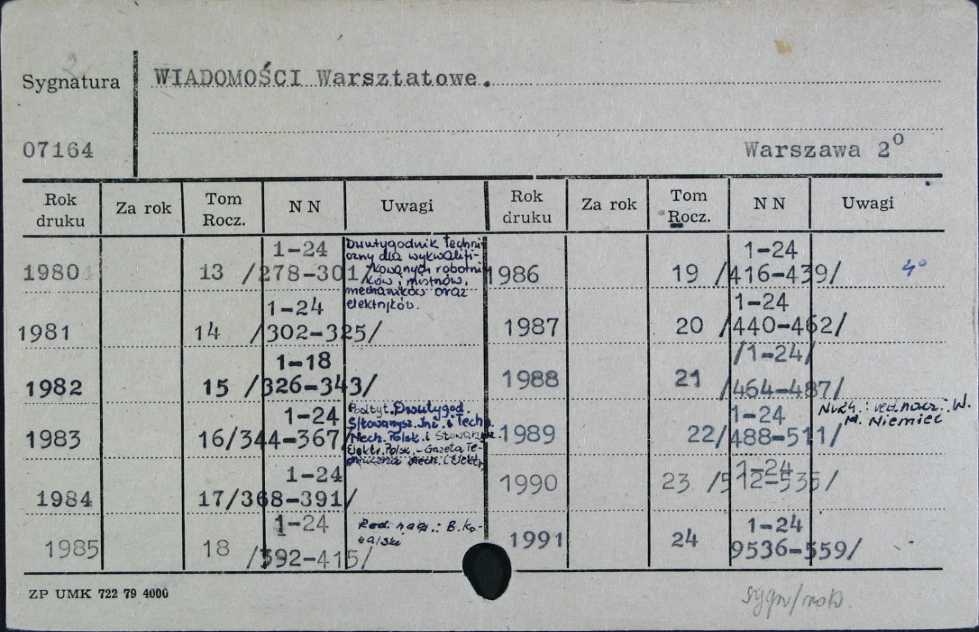 Sygnatura WIADOMOŚCI Warsztatowe.
07164 Warszawa 2°
Rok druku Za rok Tom Rocz. N N Uwagi Rok druku Za rok Tom Rocz. N N Uwagi
1-24
1980 13 /278-301/
Dwutygodnik techni-
czny dla wykwalifi-
kowanych robotni-
ków i mistrzów,
mechaników oraz
elektryków.
1-24
1981 14 /302-325/
1-18
1982 15 /326-343/
1-24
1983 16/344-367/
Podtyt. Dwutygod.
Stowarzysz. Inż. i Techn.
Mech. Polsk. i Stowarzysz.
Elektr. Polsk. - Gazeta Te-
1-24
1984 17/368-391/
1-24
1985 18 /392-415/
Red. nacz.: B. Ko-
walski
1-24
1986 19 /416-439/ 4°
1-24
1987 20 /440-462/
/1-24/
1988 21 /464-487/
1-24
1989 22/488-511/
red. nacz.: W.
M. Niemiec
1-24
1990 23 /512-535/
1-24
1991 24 9536-559/
ZP UMK 722 79 4000